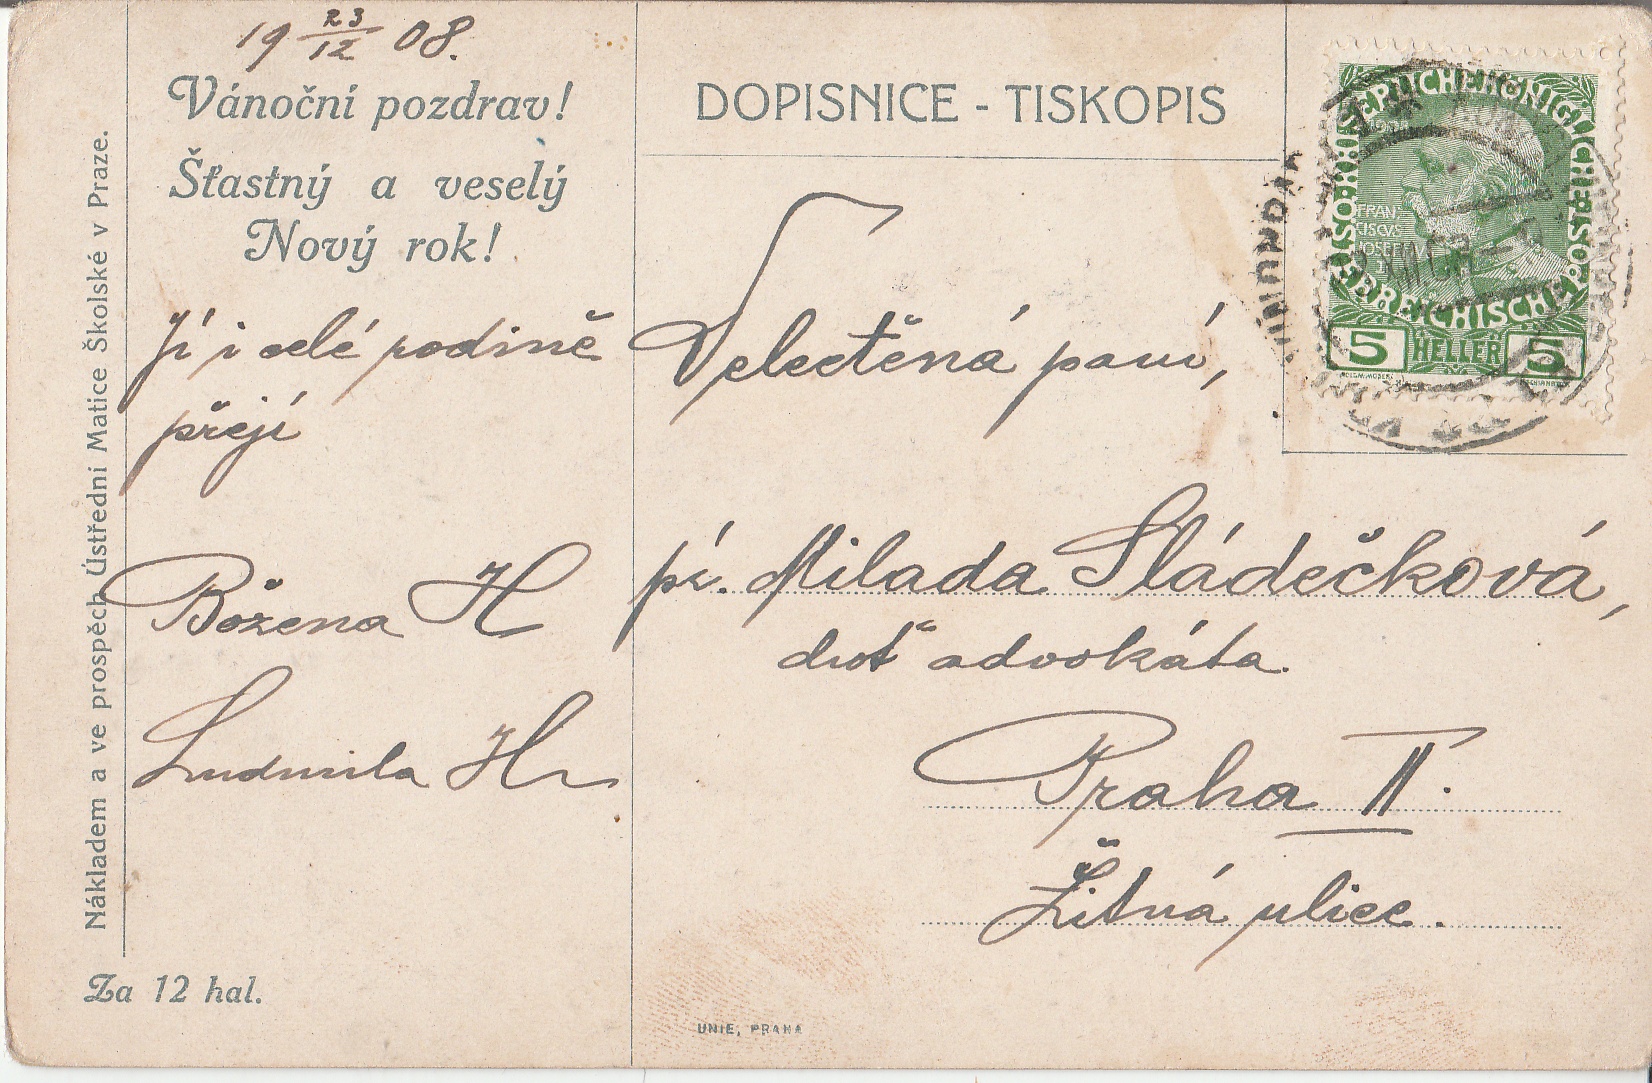 19 23/12 08.
Vánoční pozdrav!
Šťastný a veselý
Nový rok!
Jí i celé rodině
přejí
Božena H
Ludmila H
Nákladem a ve prospěch Ústřední Matice Školské v Praze.
Za 12 hal.
DOPISNICE - TISKOPIS
Velectěná paní,
pí. Milada Sládečková,
choť advokáta.
Praha II.
Žitná ulice.
UNIE, PRAHA
FRAN
CISCVS
IOSEPH
5 HELLER 5